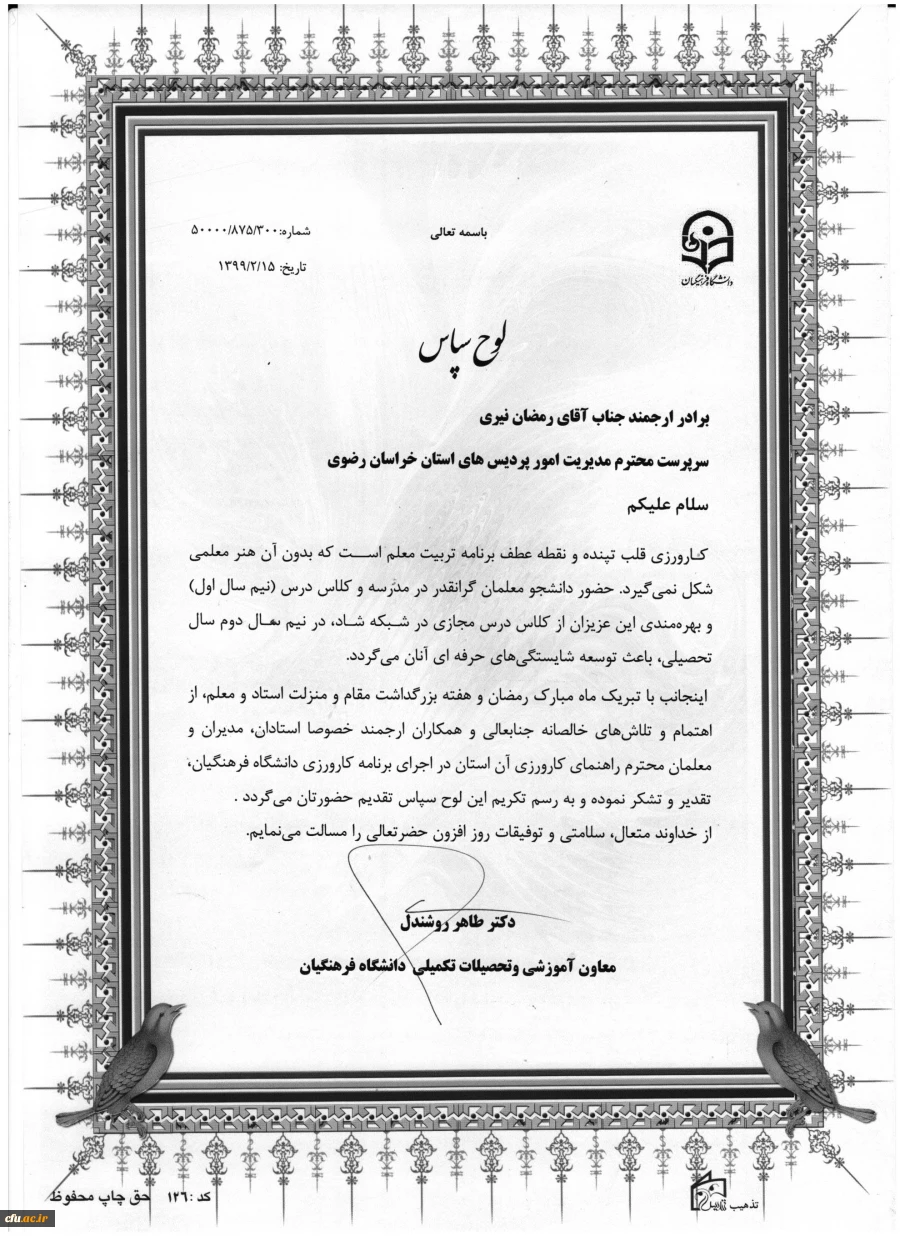 باسمه تعالی
شماره:۵۰۰۰۰/۸۷۵/۳۰۰
تاریخ: ۱۳۹۹/۲/۱۵
دانشگاه فرهنگیان
لوح سپاس
برادر ارجمند جناب آقای رمضان نیری
سرپرست محترم مدیریت امور پردیس های استان خراسان رضوی
سلام علیکم
کارورزی قلب تپنده و نقطه عطف برنامه تربیت معلم است که بدون آن هنر معلمی
شکل نمی‌گیرد. حضور دانشجو معلمان گرانقدر در مدرسه و کلاس درس (نیم سال اول)
و بهره‌مندی این عزیزان از کلاس درس مجازی در شبکه شاد، در نیم سال دوم سال
تحصیلی، باعث توسعه شایستگی‌های حرفه ای آنان می‌گردد.
اینجانب با تبریک ماه مبارک رمضان و هفته بزرگداشت مقام و منزلت استاد و معلم، از
اهتمام و تلاش‌های خالصانه جنابعالی و همکاران ارجمند خصوصا استادان، مدیران و
معلمان محترم راهنمای کارورزی آن استان در اجرای برنامه کارورزی دانشگاه فرهنگیان،
تقدیر و تشکر نموده و به رسم تکریم این لوح سپاس تقدیم حضورتان می‌گردد .
از خداوند متعال، سلامتی و توفیقات روز افزون حضرتعالی را مسالت می‌نمایم.
دکتر طاهر روشندل
معاون آموزشی وتحصیلات تکمیلی دانشگاه فرهنگیان
تذهیب
کد :۱۲۶ حق چاپ محفوظ
cfu.ac.ir